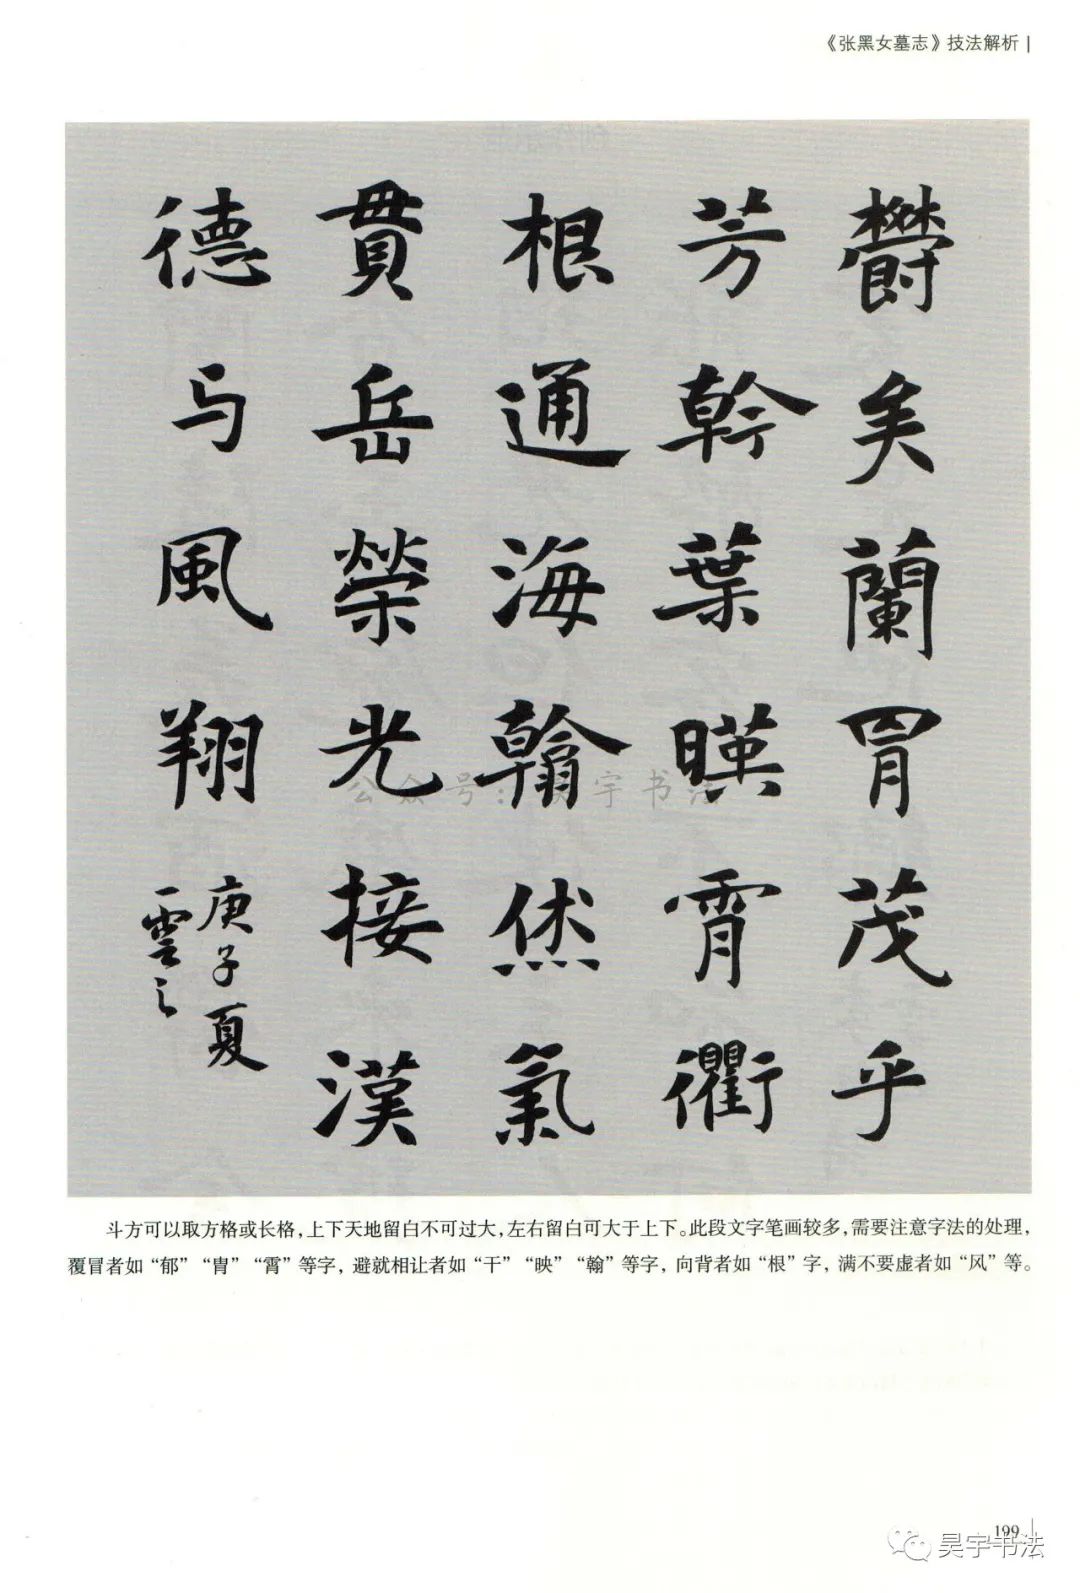 《张黑女墓志》技法解析
鬱矣蘭胃茂乎
芳幹葉暎霄衢
根通海翰恷氣
貫岳榮光接漢
德与風翔
庚子夏
一雲之
公众号：昊宇书法
斗方可以取方格或长格，上下天地留白不可过大，左右留白可大于上下。此段文字笔画较多，需要注意字法的处理，
覆冒者如“郁”“胄”“霄”等字，避就相让者如“干”“映”“翰”等字，向背者如“根”字，满不要虚者如“风”等。
199
昊宇书法